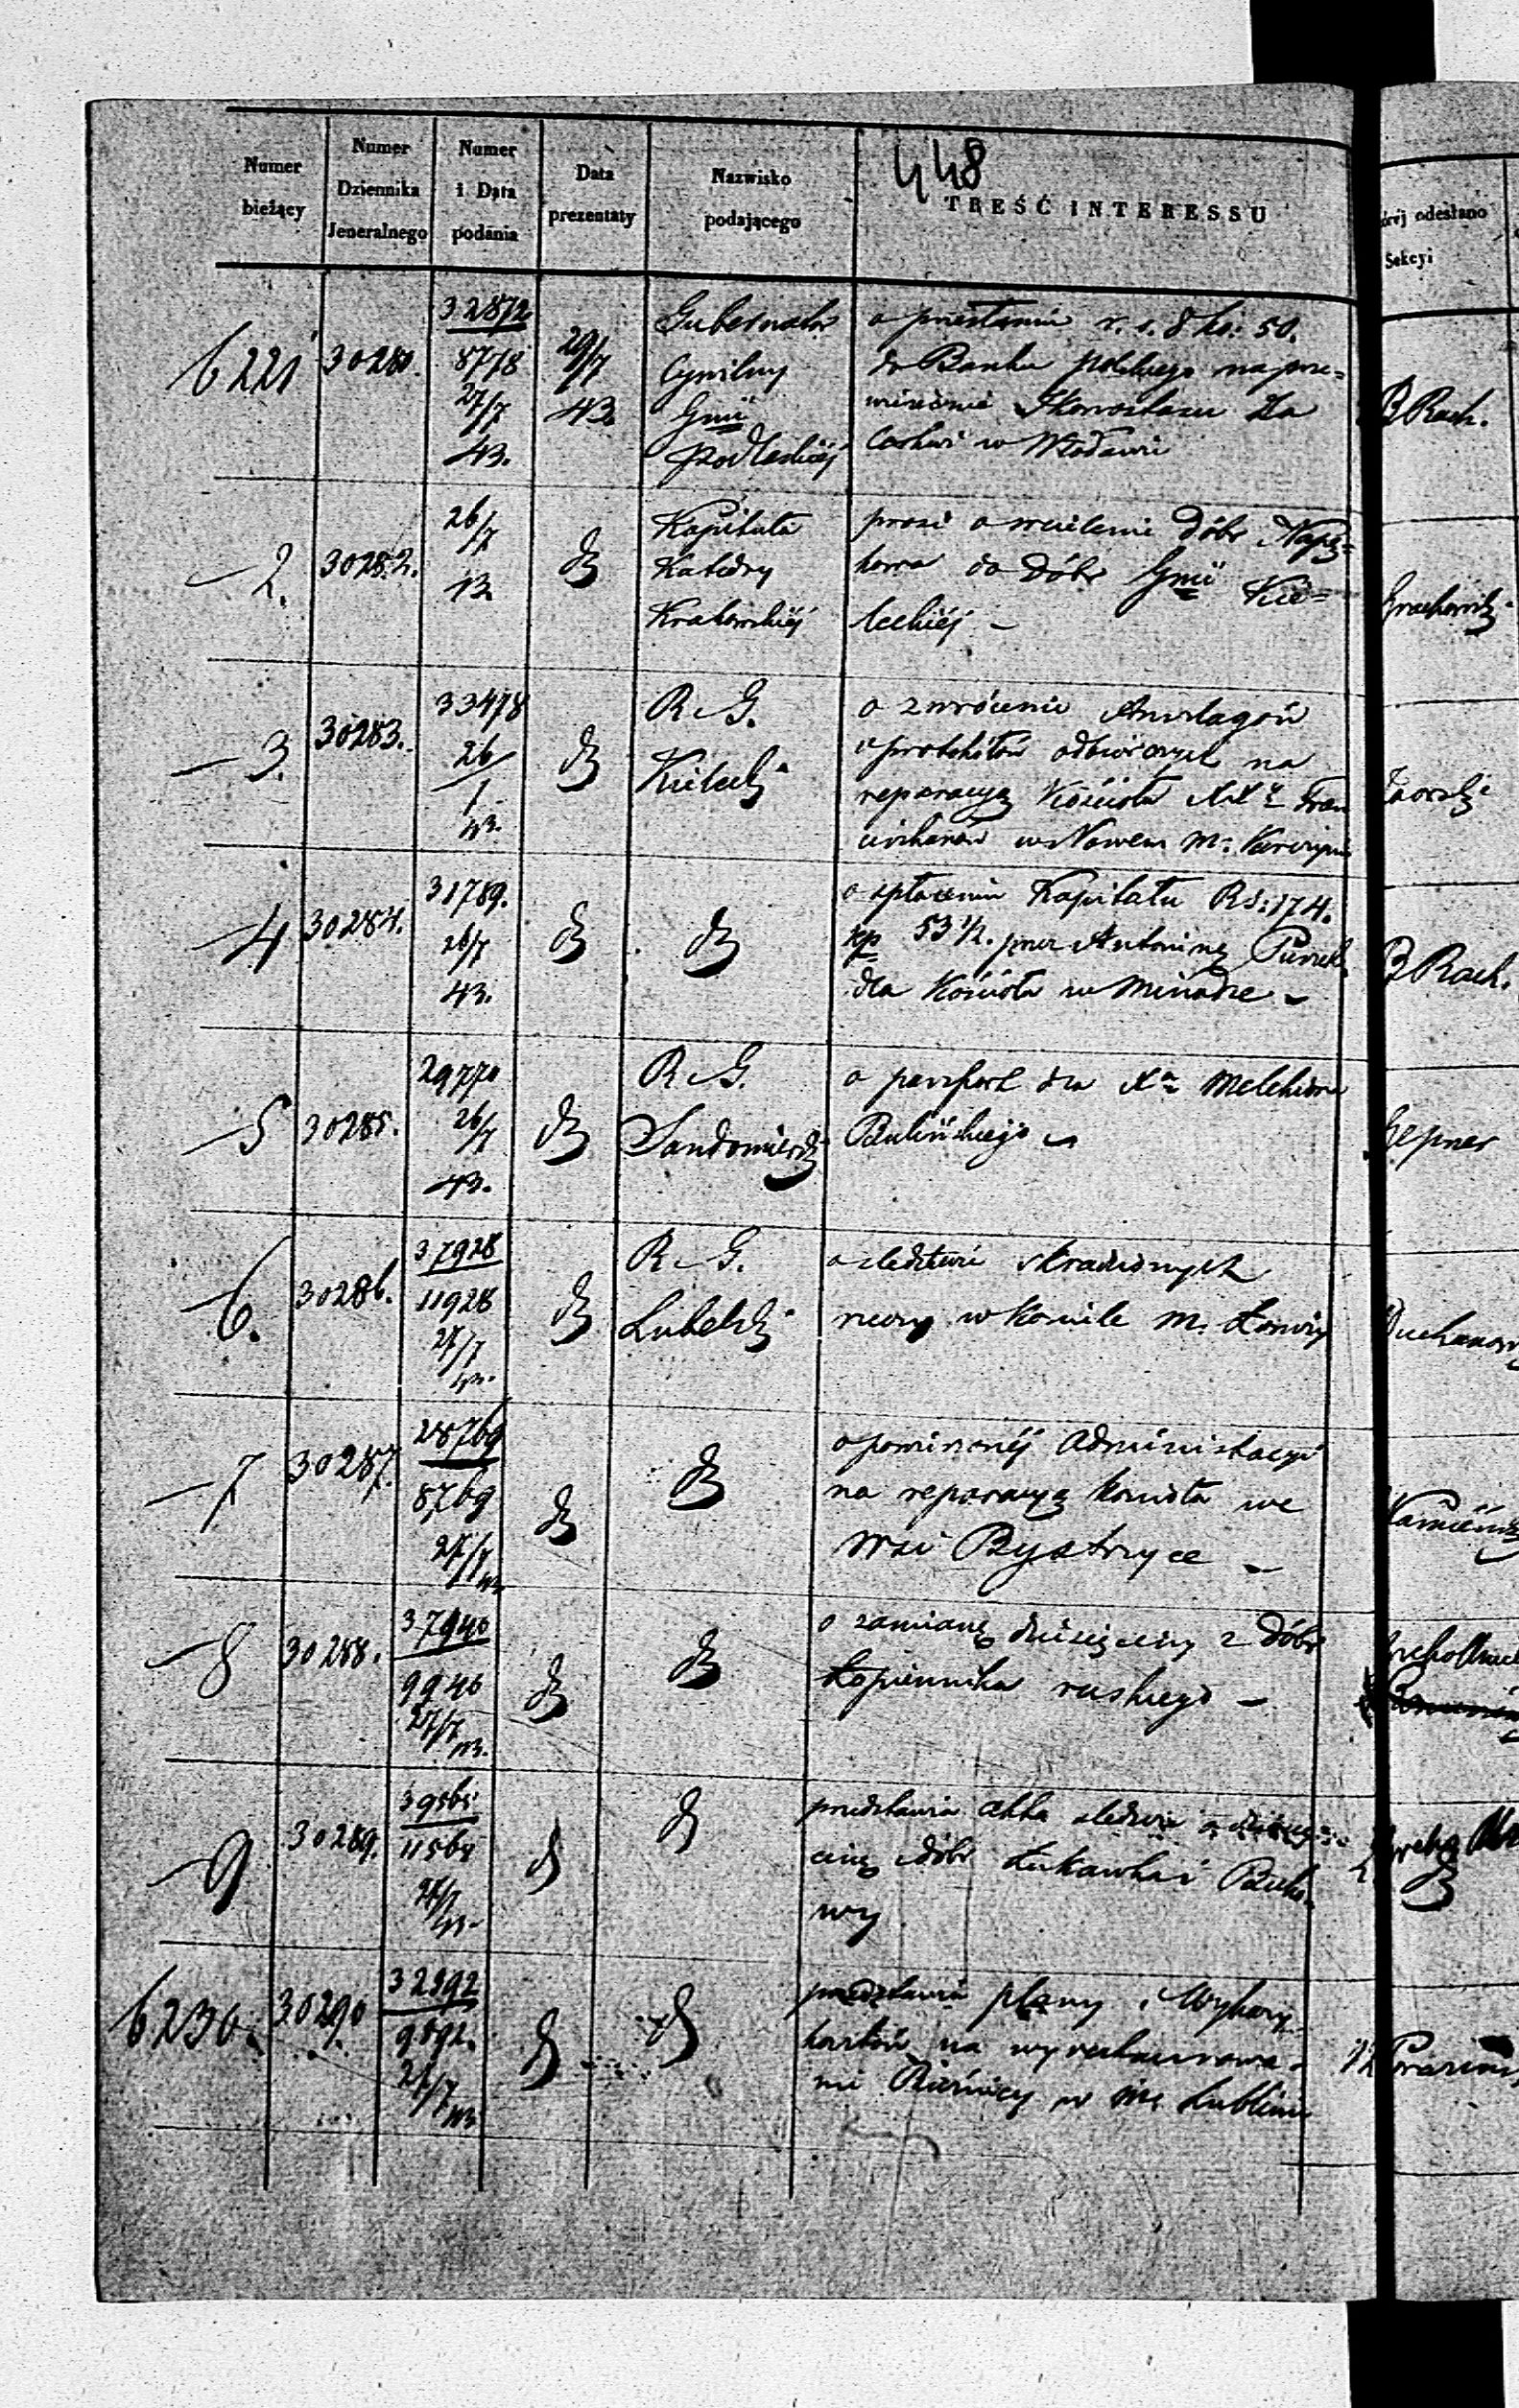 448
Numer bieżący
Numer Dziennika Jeneralnego
Numer i Data podania
Data prezentaty
Nazwisko podającego
TREŚĆ INTERESSU
órej odesłano Sekcyi
6221
30280.
32872
8778
27/7
43.
29/7
43.
Gubernator
Cywilny
Gnii
Podleskiéj
o przesłaniu r. s. 8 ko: 50.
do Banku polskiego na prze=
wiezienie Ikonostasu Za
Cerkwi w Włodawie
B Rach.
2.
30282.
26/7
43.
Kapituła
Katedry
Krakowskiéj
prosi o wcielenie Dóbr
kowa do Dóbr Gnii Kie=
leckiéj –
3.
30283.
33478
26/
1
43.
R. G.
Kielecki
o zwrócenie Anszlagów
i protokółów odbiorczych na
reparacyą Kościoła XXy Fran
ciszkanów w Nowem M.
4
30284.
31789.
26/7
43.
o spłacenie Kapitału RS: 174.
kp 53 1/2. przez Antoninę
dla Kościoła w –
B Rach.
5
30285.
29770
26/7
43.
R. G.
Sandomierski
o paszport dla Xa Melchiora
Bulińskiego –
Hepner
6.
30286.
37928
11928
27/7
43.
R. G.
Lubelski
o śledztwie skradzionych
rzeczy w kościele M. Łosicy
7
30287.
28769
8769
27/7
43.
o Administracyi
na reparacyą kościoła we
Wsi Bystrzyce –
8
30288.
37946
9946
27/7
43.
o zamianę dziesięciny z Dóbr
Łopiennika ruskiego –
9
30289.
39565
11565
27/7
43.
przedstawia akta
cinę dóbr Łukawka i
wy
6230.
30290
32892
9892.
27/7
43.
przedstawia plany i Wykazy
kosztów na wyrestaurowa=
nie w M. Lublinie